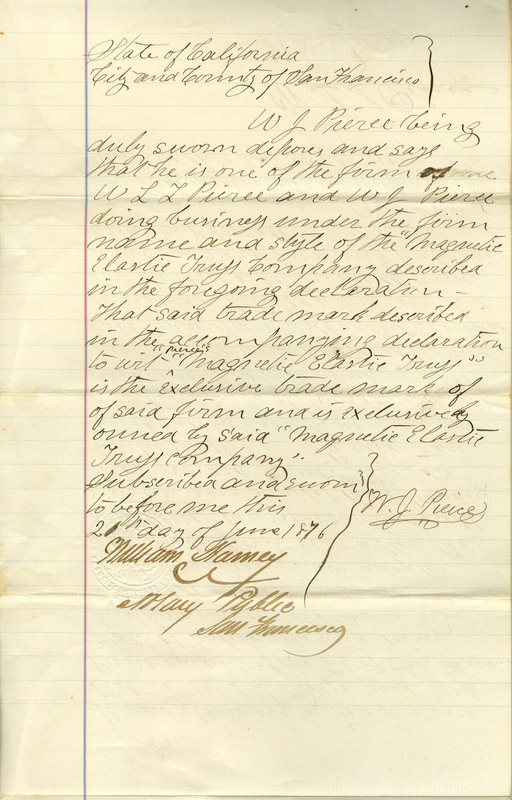 State of California
City and County of San Francisco
W J Pierce being
duly sworn deposes and says
that he is one of the firm of
W L L Pierce and W J Pierce
doing business under the firm
name and style of the "Magnetic
Elastic Truss Company described
in the foregoing declaration -
That said trade mark described
in the accompanying declaration
to wit "Pierce's "Magnetic Elastic Truss"
is the exclusive trade mark of
of said firm and is exclusively
owned by said "Magnetic Elastic
Truss Company".
Subscribed and sworn
to before me this
day of June 1876
W. J. Pierce
William Harney
Notary Public
San Francisco